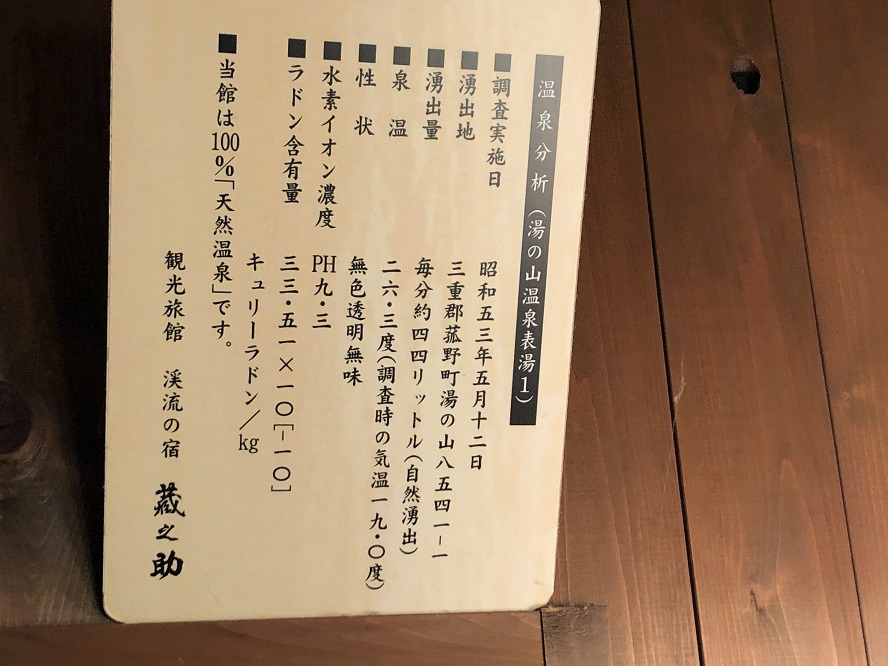 温泉分析(湯の山温泉表湯1)
■調査実施日 昭和五三年五月十二日
■湧出地 三重郡菰野町湯の山八五四一-一
■湧出量 毎分約四四リットル(自然湧出)
■泉温 二六・三度(調査時の気温一九・〇度)
■性状 無色透明無味
■水素イオン濃度 PH九・三
■ラドン含有量 三三・五一×一〇[-一〇]
キュリーラドン/kg
■当館は100%「天然温泉」です。
観光旅館 渓流の宿 蔵之助